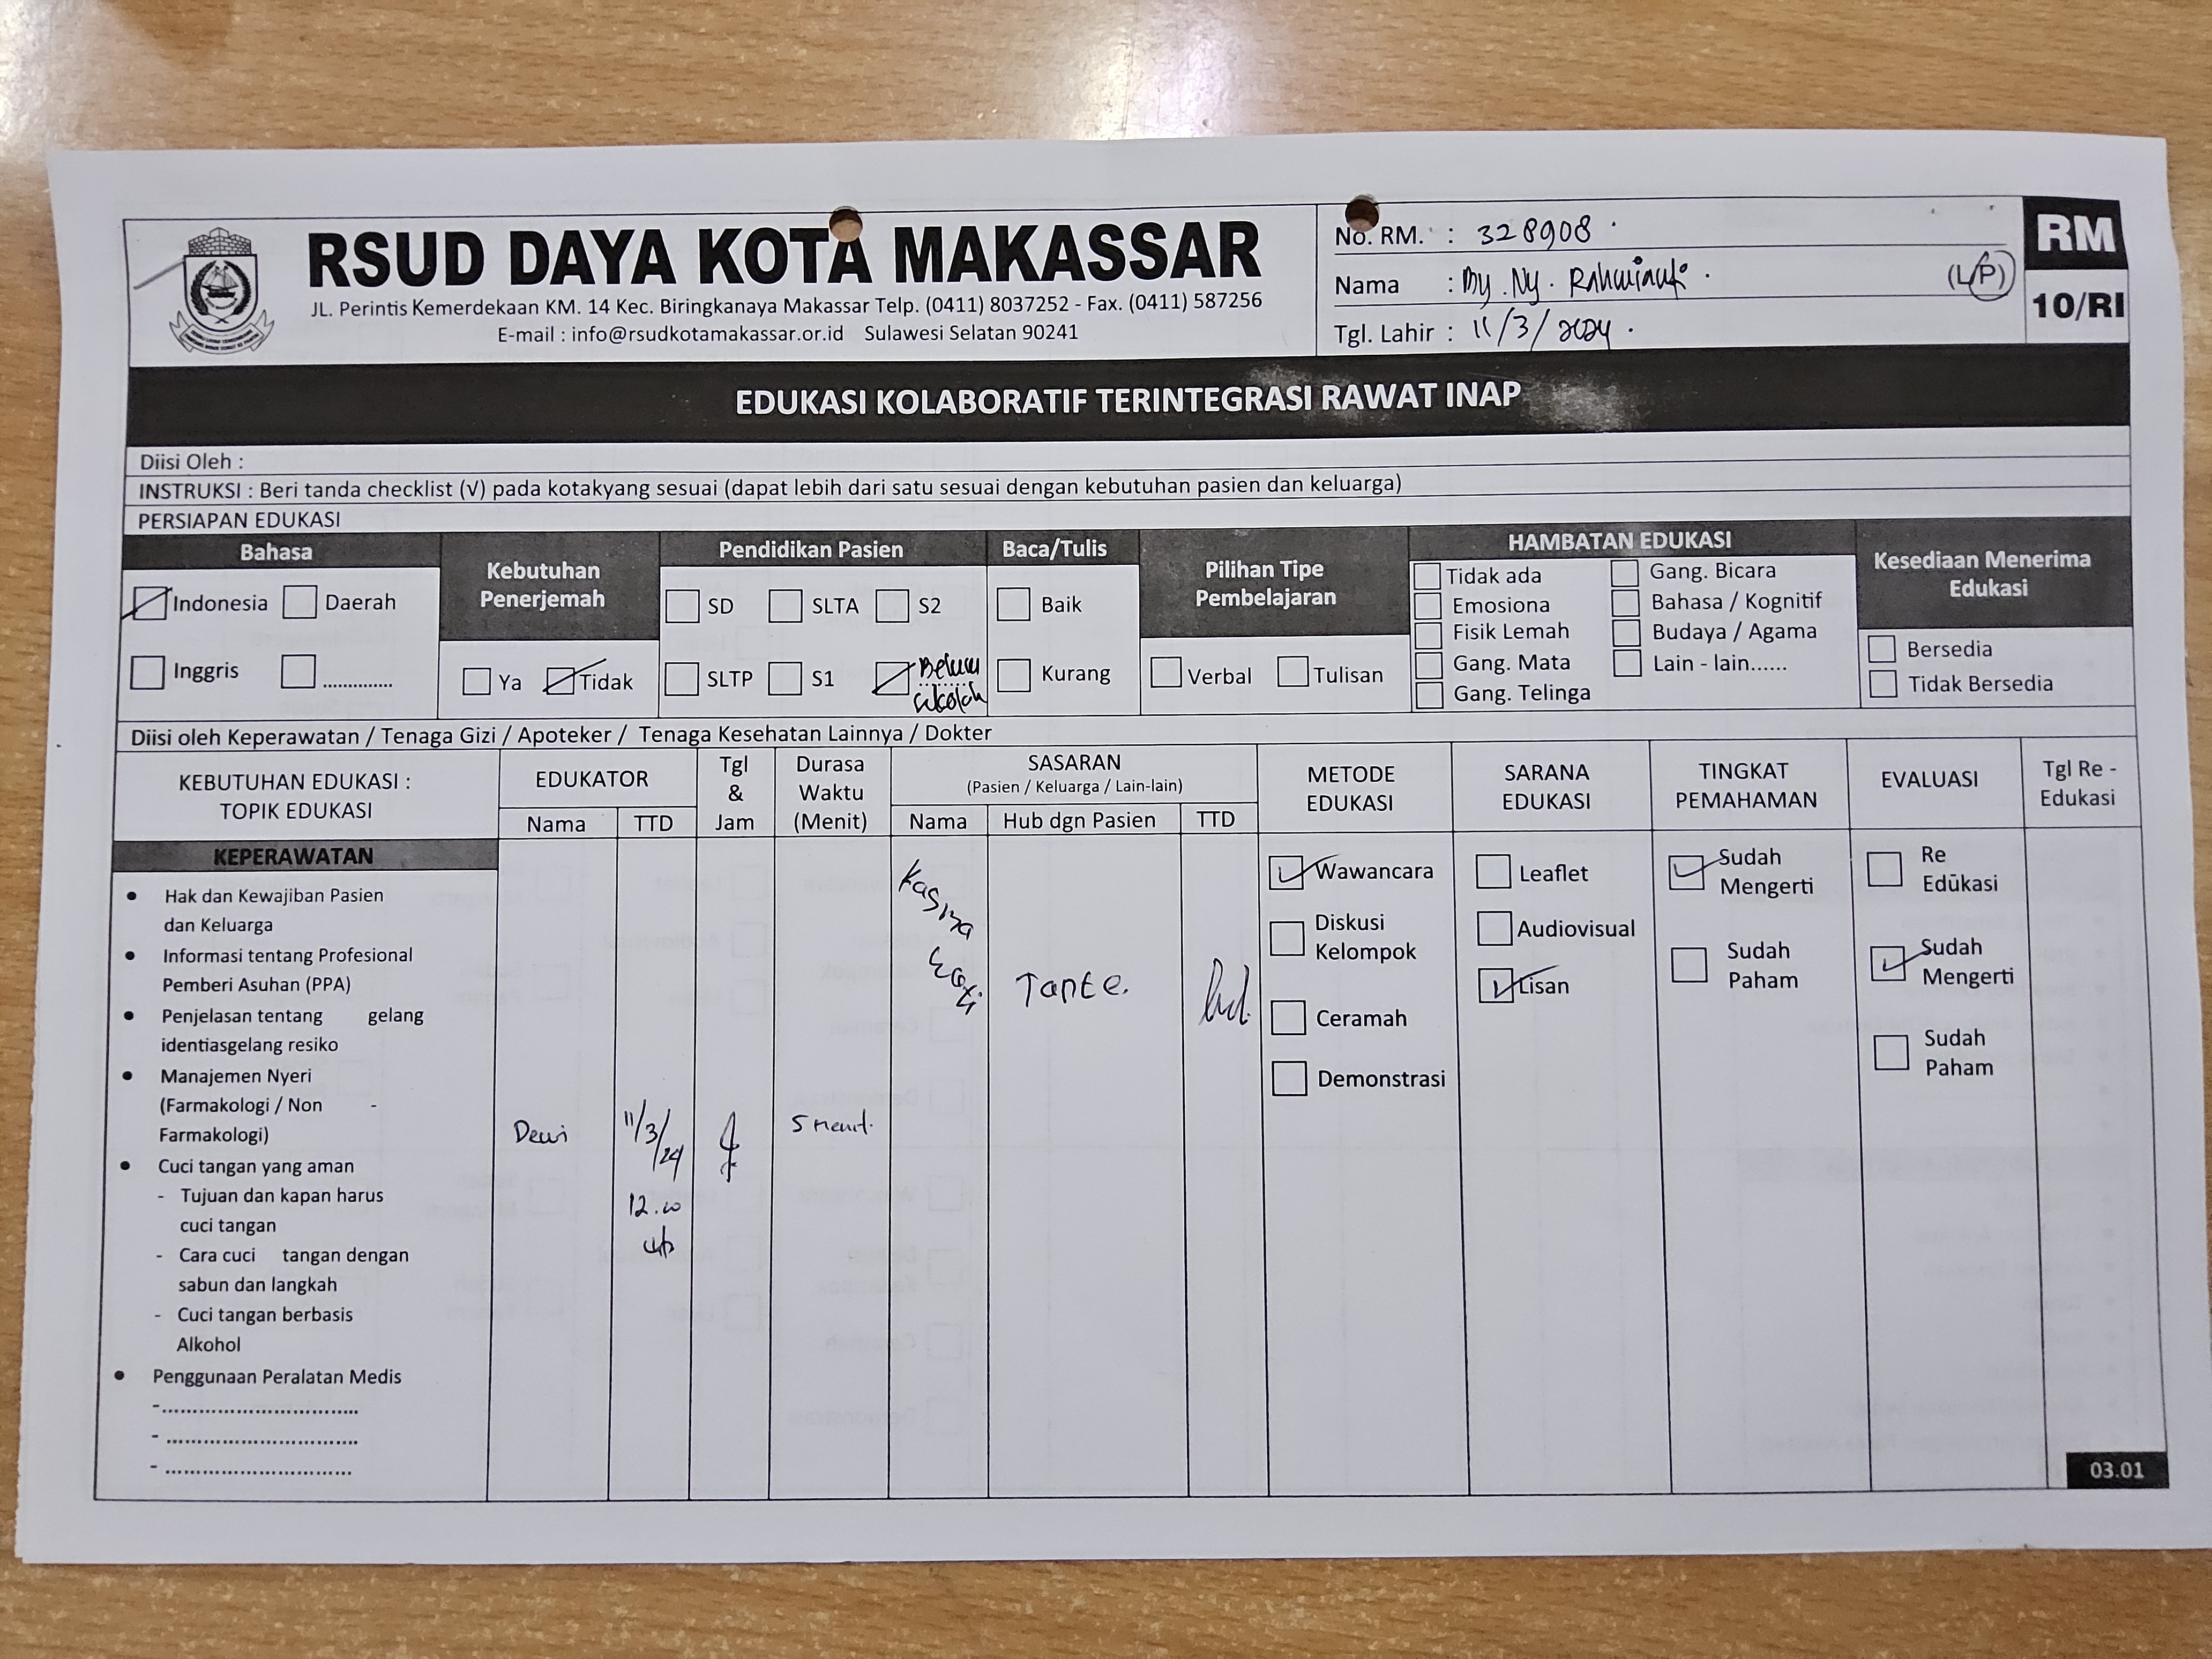 RSUD DAYA KOTA MAKASSAR
JL. Perintis Kemerdekaan KM. 14 Kec. Biringkanaya Makassar Telp. (0411) 8037252 - Fax. (0411) 587256
E-mail : info@rsudkotamakassar.or.id Sulawesi Selatan 90241
No. RM. : 328908
Nama : By. Ny. (L/P)
Tgl. Lahir : 11/3/2024
RM
10/RI
EDUKASI KOLABORATIF TERINTEGRASI RAWAT INAP
Diisi Oleh :
INSTRUKSI : Beri tanda checklist (√) pada kotakyang sesuai (dapat lebih dari satu sesuai dengan kebutuhan pasien dan keluarga)
PERSIAPAN EDUKASI
Bahasa
Indonesia Daerah
Inggris ..............
Kebutuhan
Penerjemah
Ya Tidak
Pendidikan Pasien
SD SLTA S2
SLTP S1 Belum
sekolah
Baca/Tulis
Baik
Kurang
Pilihan Tipe
Pembelajaran
Verbal Tulisan
HAMBATAN EDUKASI
Tidak ada Gang. Bicara
Emosiona Bahasa / Kognitif
Fisik Lemah Budaya / Agama
Gang. Mata Lain - lain......
Gang. Telinga
Kesediaan Menerima
Edukasi
Bersedia
Tidak Bersedia
Diisi oleh Keperawatan / Tenaga Gizi / Apoteker / Tenaga Kesehatan Lainnya / Dokter
KEBUTUHAN EDUKASI :
TOPIK EDUKASI
EDUKATOR
Nama TTD
Tgl
&
Jam
Durasa
Waktu
(Menit)
SASARAN
(Pasien / Keluarga / Lain-lain)
Nama Hub dgn Pasien TTD
METODE
EDUKASI
SARANA
EDUKASI
TINGKAT
PEMAHAMAN
EVALUASI
Tgl Re -
Edukasi
KEPERAWATAN
• Hak dan Kewajiban Pasien
dan Keluarga
• Informasi tentang Profesional
Pemberi Asuhan (PPA)
• Penjelasan tentang gelang
identiasgelang resiko
• Manajemen Nyeri
(Farmakologi / Non -
Farmakologi)
• Cuci tangan yang aman
- Tujuan dan kapan harus
cuci tangan
- Cara cuci tangan dengan
sabun dan langkah
- Cuci tangan berbasis
Alkohol
• Penggunaan Peralatan Medis
-.................................
- .................................
- ................................
Dewi
11/3/24
12.00
5 menit.
Tante.
Wawancara
Diskusi
Kelompok
Ceramah
Demonstrasi
Leaflet
Audiovisual
Lisan
Sudah
Mengerti
Sudah
Paham
Re
Edukasi
Sudah
Mengerti
Sudah
Paham
03.01